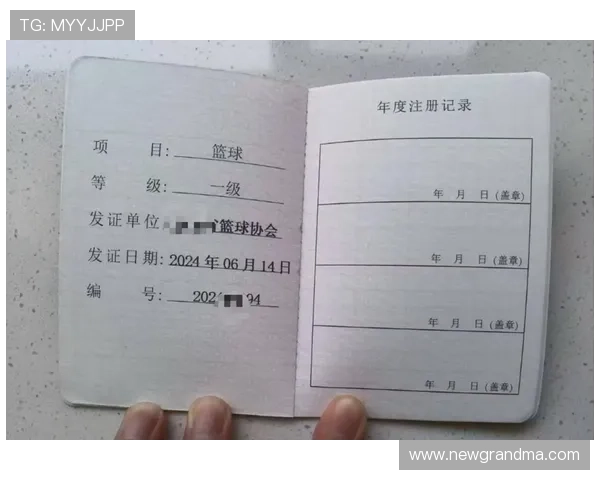 TG: MYYJJPP
项 目: 篮球
等 级: 一级
发证单位 篮球协会
发证日期: 2024 年 06 月 14 日
编 号: 202 94
年度注册记录
年 月 日(盖章)
年 月 日(盖章)
年 月 日(盖章)
年 月 日(盖章)
www.newgrandma.com